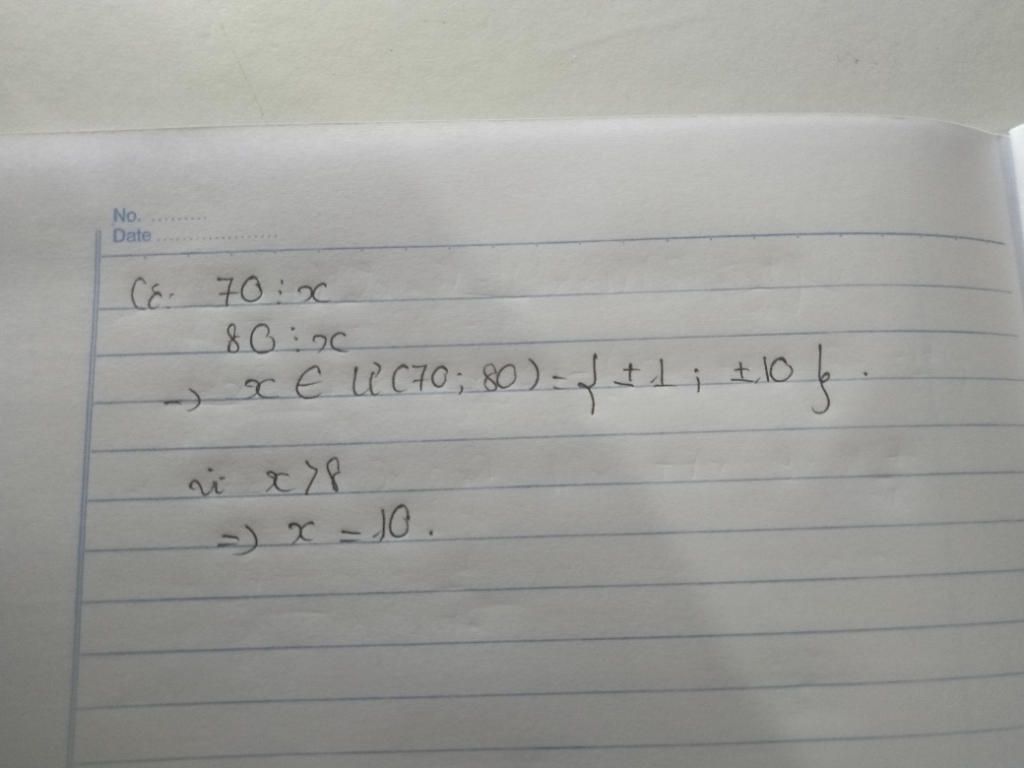 No. .........
Date ...................
Có: 70 ⋮ x
80 ⋮ x
→ x ∈ Ư(70; 80) = { ±1; ±10 }.
vì x > 8
=> x = 10.